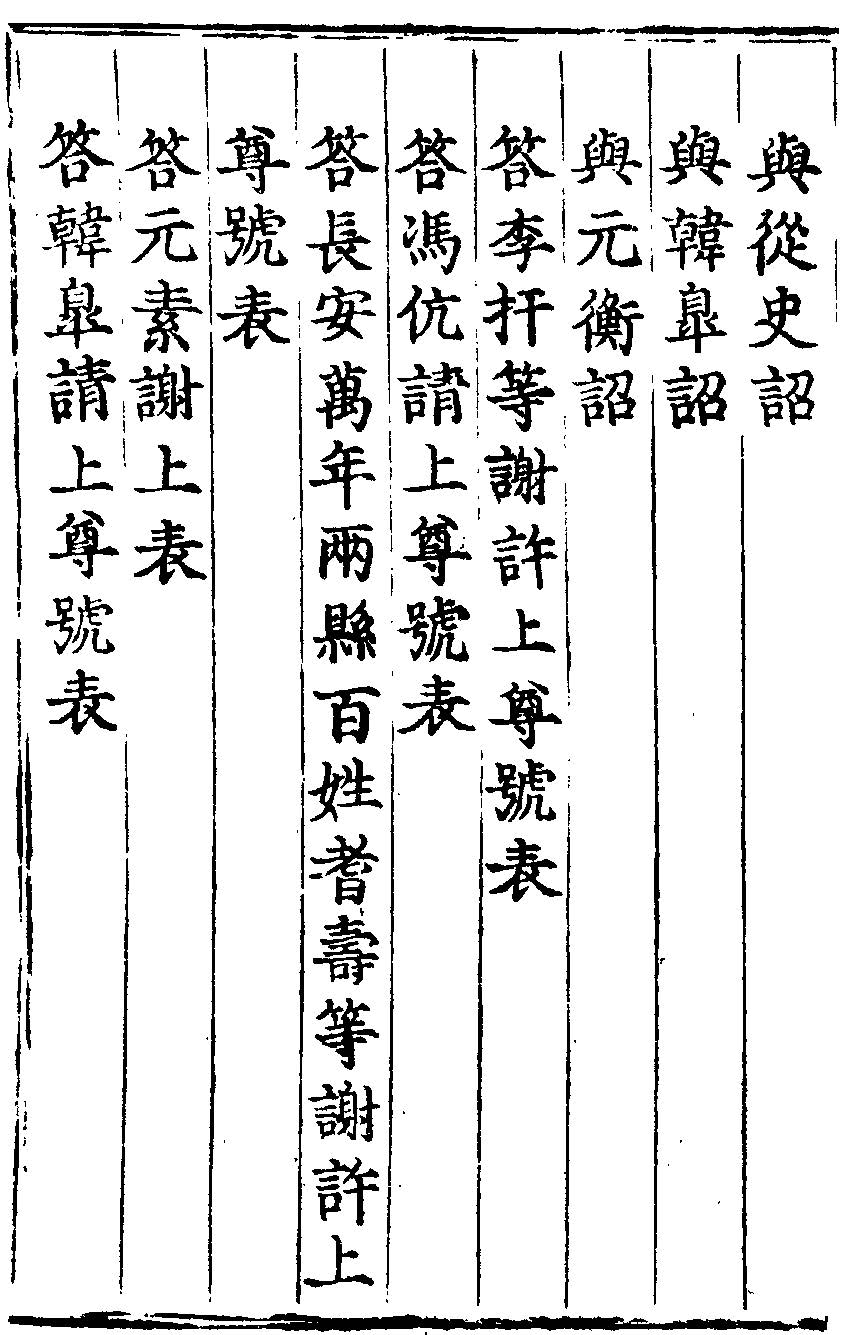 與從史詔
與韓臯詔
與元衡詔
答李扞等謝許上尊號表
答馮伉請上尊號表
答長安萬年兩縣百姓耆壽等謝許上
尊號表
答元素謝上表
答韓臯請上尊號表